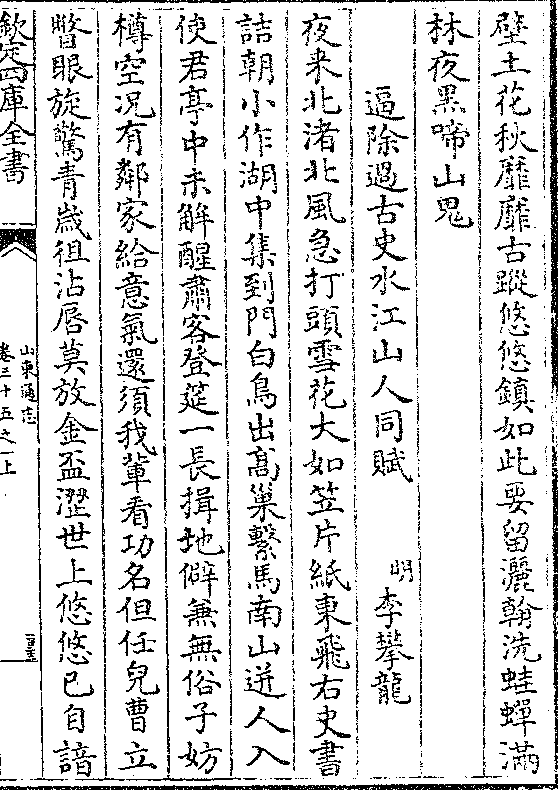 壁土花秋靡靡古蹤悠悠鎮如此要留灑翰洗蛙蟬滿
林夜黒啼山鬼
逼除過古史水江山人同賦 明 李攀龍
夜来北渚北風急打頭雪花大如笠片紙東飛右史書
詰朝小作湖中集到門白鳥出髙巢繫馬南山迸人入
使君亭中未解醒肅客登筵一長揖地僻兼無俗子妨
樽空况有鄰家給意氣還須我輩看功名但任兒曹立
瞥眼旋驚青嵗徂沾唇莫放金盃澀世上悠悠已自諳
欽定四庫全書
山東通志
卷三十五之一上